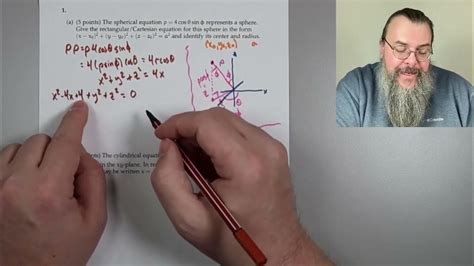 1.
(a) (5 points) The spherical equation ρ = 4 cos θ sin ϕ represents a sphere.
Give the rectangular/Cartesian equation for this sphere in the form
(x − x₀)² + (y − y₀)² + (z − z₀)² = a² and identify its center and radius.
(x₀, y₀, z₀) a
ρρ=ρ4cosθsinϕ
=4(ρsinϕ)cosθ = 4rcosθ
x²+y²+z² = 4x
x²-4x+4+y²+z²=0
points) The cylindrical equation
in the xy-plane. In
may be written x =